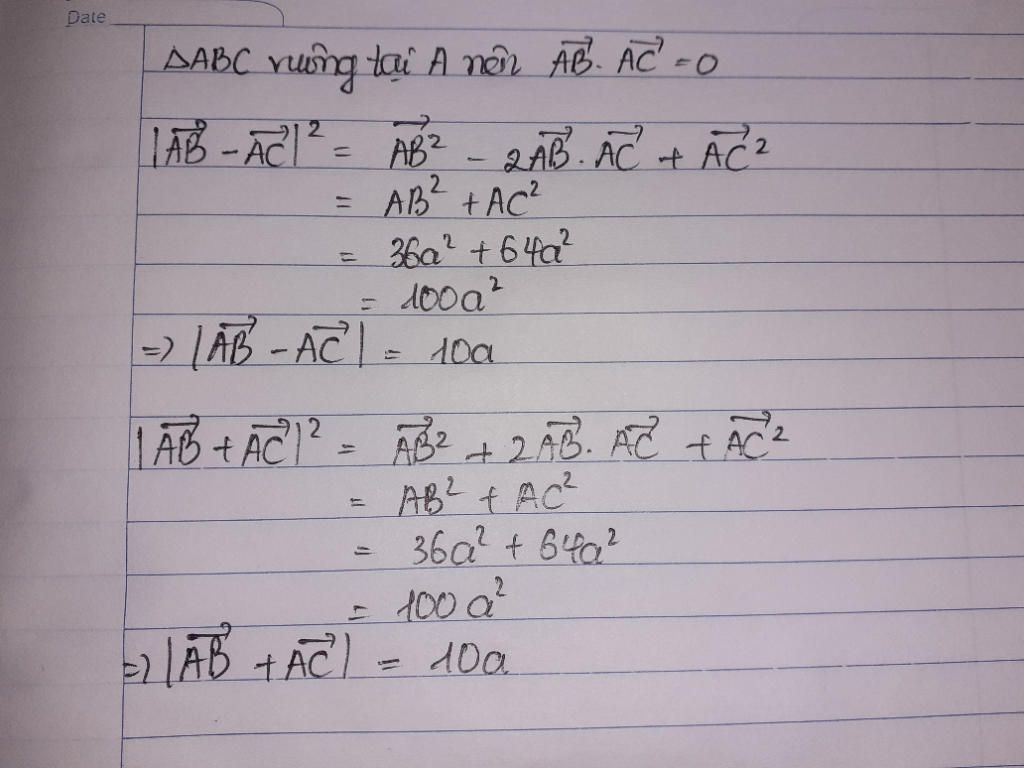 Date
△ABC vuông tại A nên \overrightarrow{AB}. \overrightarrow{AC} = 0
|\overrightarrow{AB} - \overrightarrow{AC}|² = \overrightarrow{AB}² - 2\overrightarrow{AB}. \overrightarrow{AC} + \overrightarrow{AC}²
= AB² + AC²
= 36a² + 64a²
= 100a²
=> |\overrightarrow{AB} - \overrightarrow{AC}| = 10a
|\overrightarrow{AB} + \overrightarrow{AC}|² = \overrightarrow{AB}² + 2\overrightarrow{AB}. \overrightarrow{AC} + \overrightarrow{AC}²
= AB² + AC²
= 36a² + 64a²
= 100a²
=> |\overrightarrow{AB} + \overrightarrow{AC}| = 10a